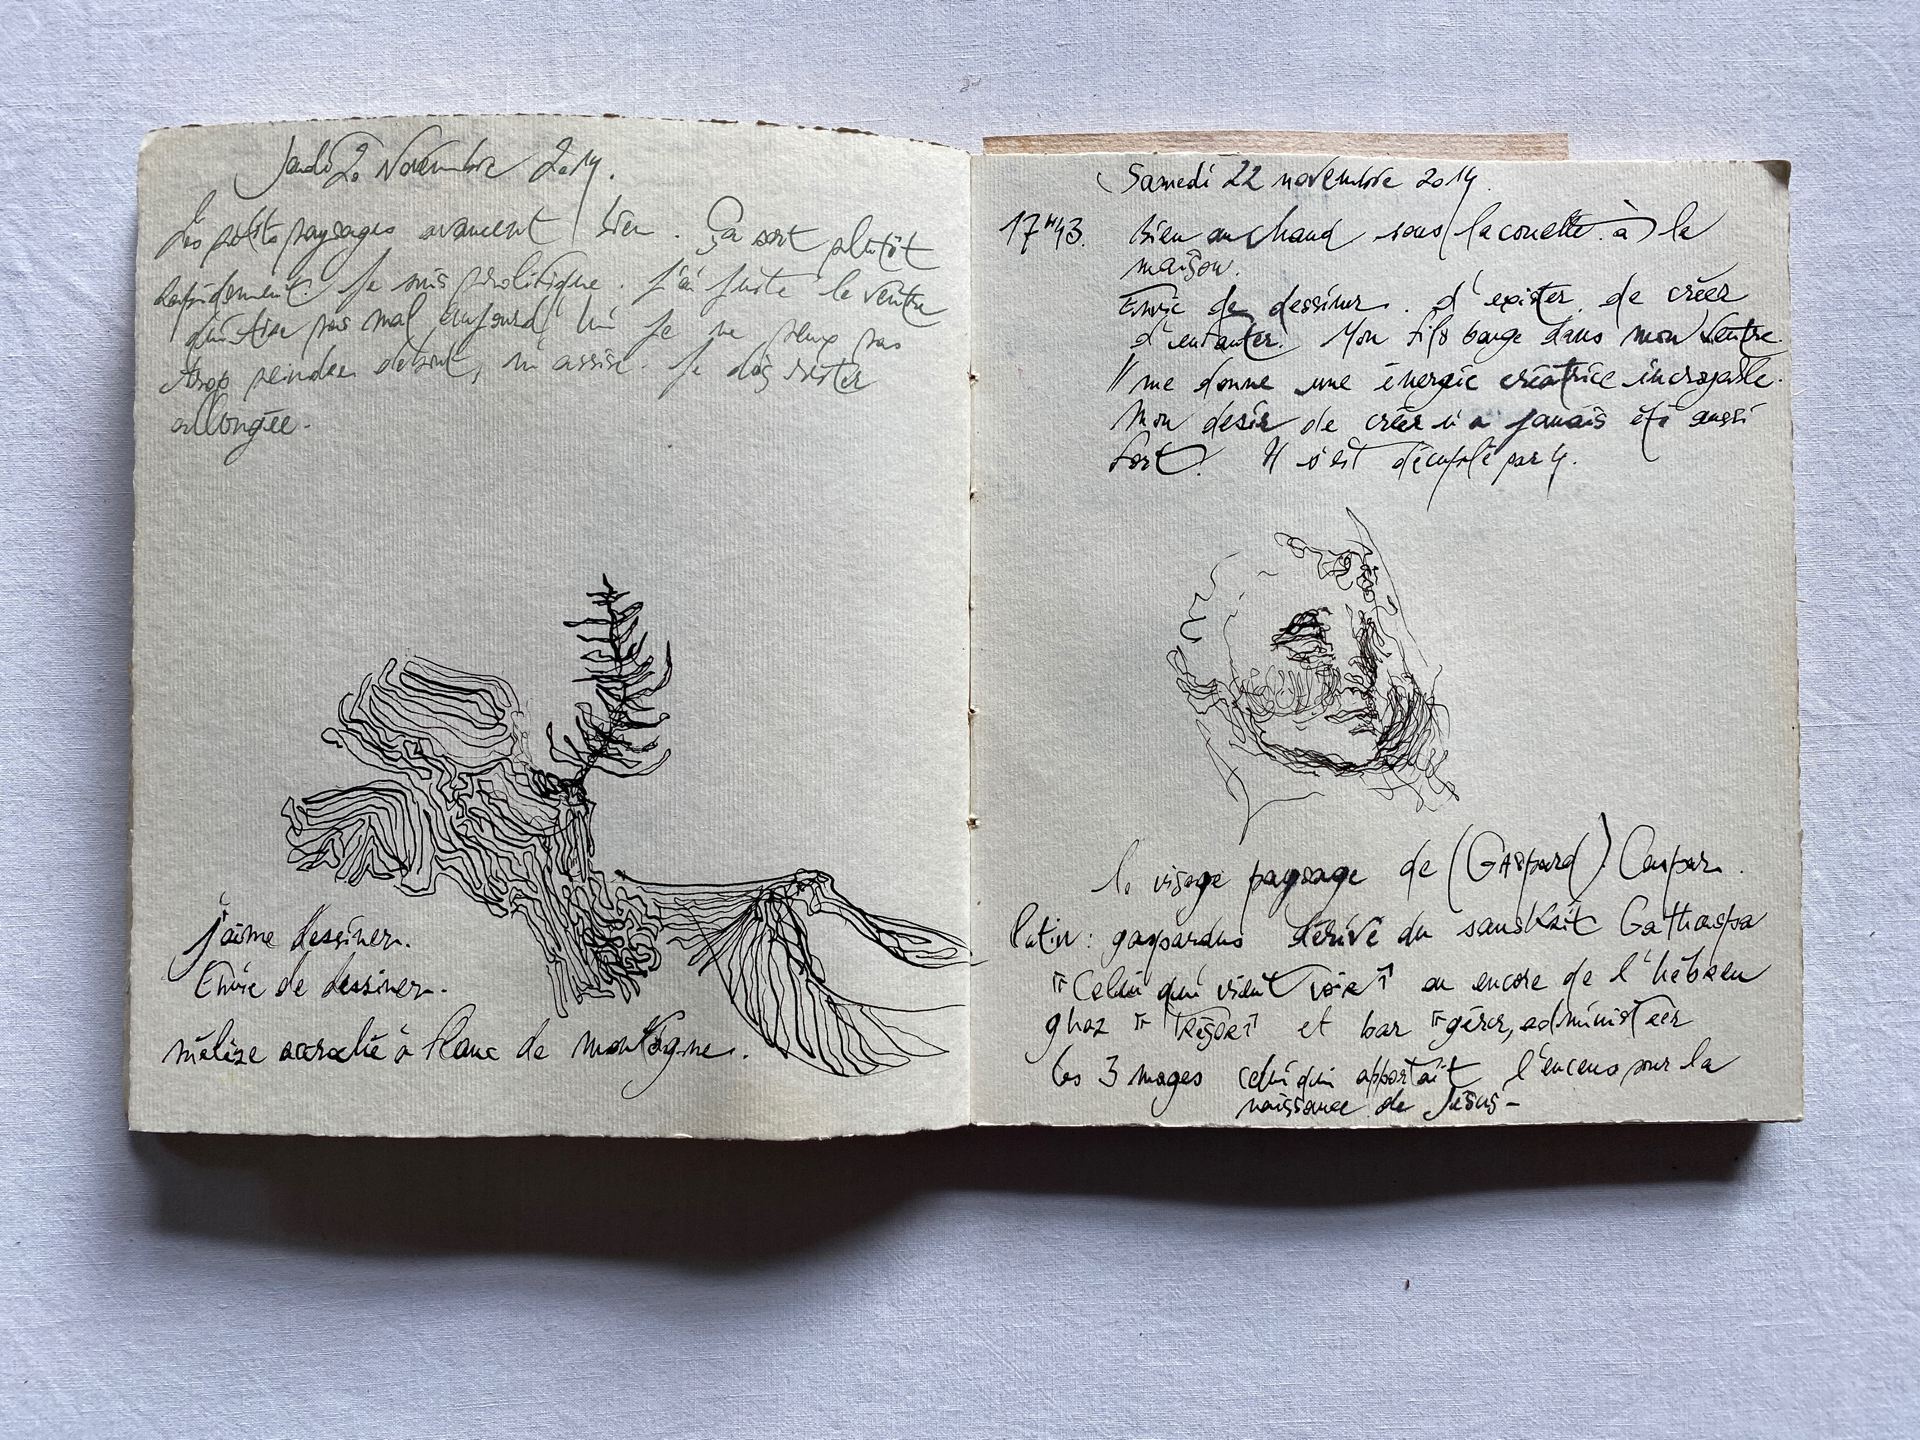 Jeudi 20 Novembre 2014.
Les petits paysages avancent bien. Ça sort plutôt
rapidement. Je suis prolifique. J'ai juste le ventre
qui tire pas mal aujourd'hui je ne peux pas
trop peindre debout, ni assise. Je dois rester
allongée.
j'aime dessiner.
Envie de dessiner.
mélèze accroché à flanc de montagne.
Samedi 22 novembre 2014.
17H43. Bien au chaud sous la couette à la
maison.
Envie de dessiner. d'exister de créer
d'enfanter. Mon fils bouge dans mon ventre.
Il me donne une énergie créatrice incroyable.
Mon désir de créer n'a jamais été aussi
fort. Il s'est décuplé par 4.
le visage paysage de (Gaspard) Caspar.
latin: gaspardus dérivé du sanskrit Gathaspa
"Celui qui vient voir" ou encore de l'hébreu
ghaz "Trésor" et bar "gérer, administrer
les 3 mages celui qui apportait l'encens pour la
naissance de Jésus-